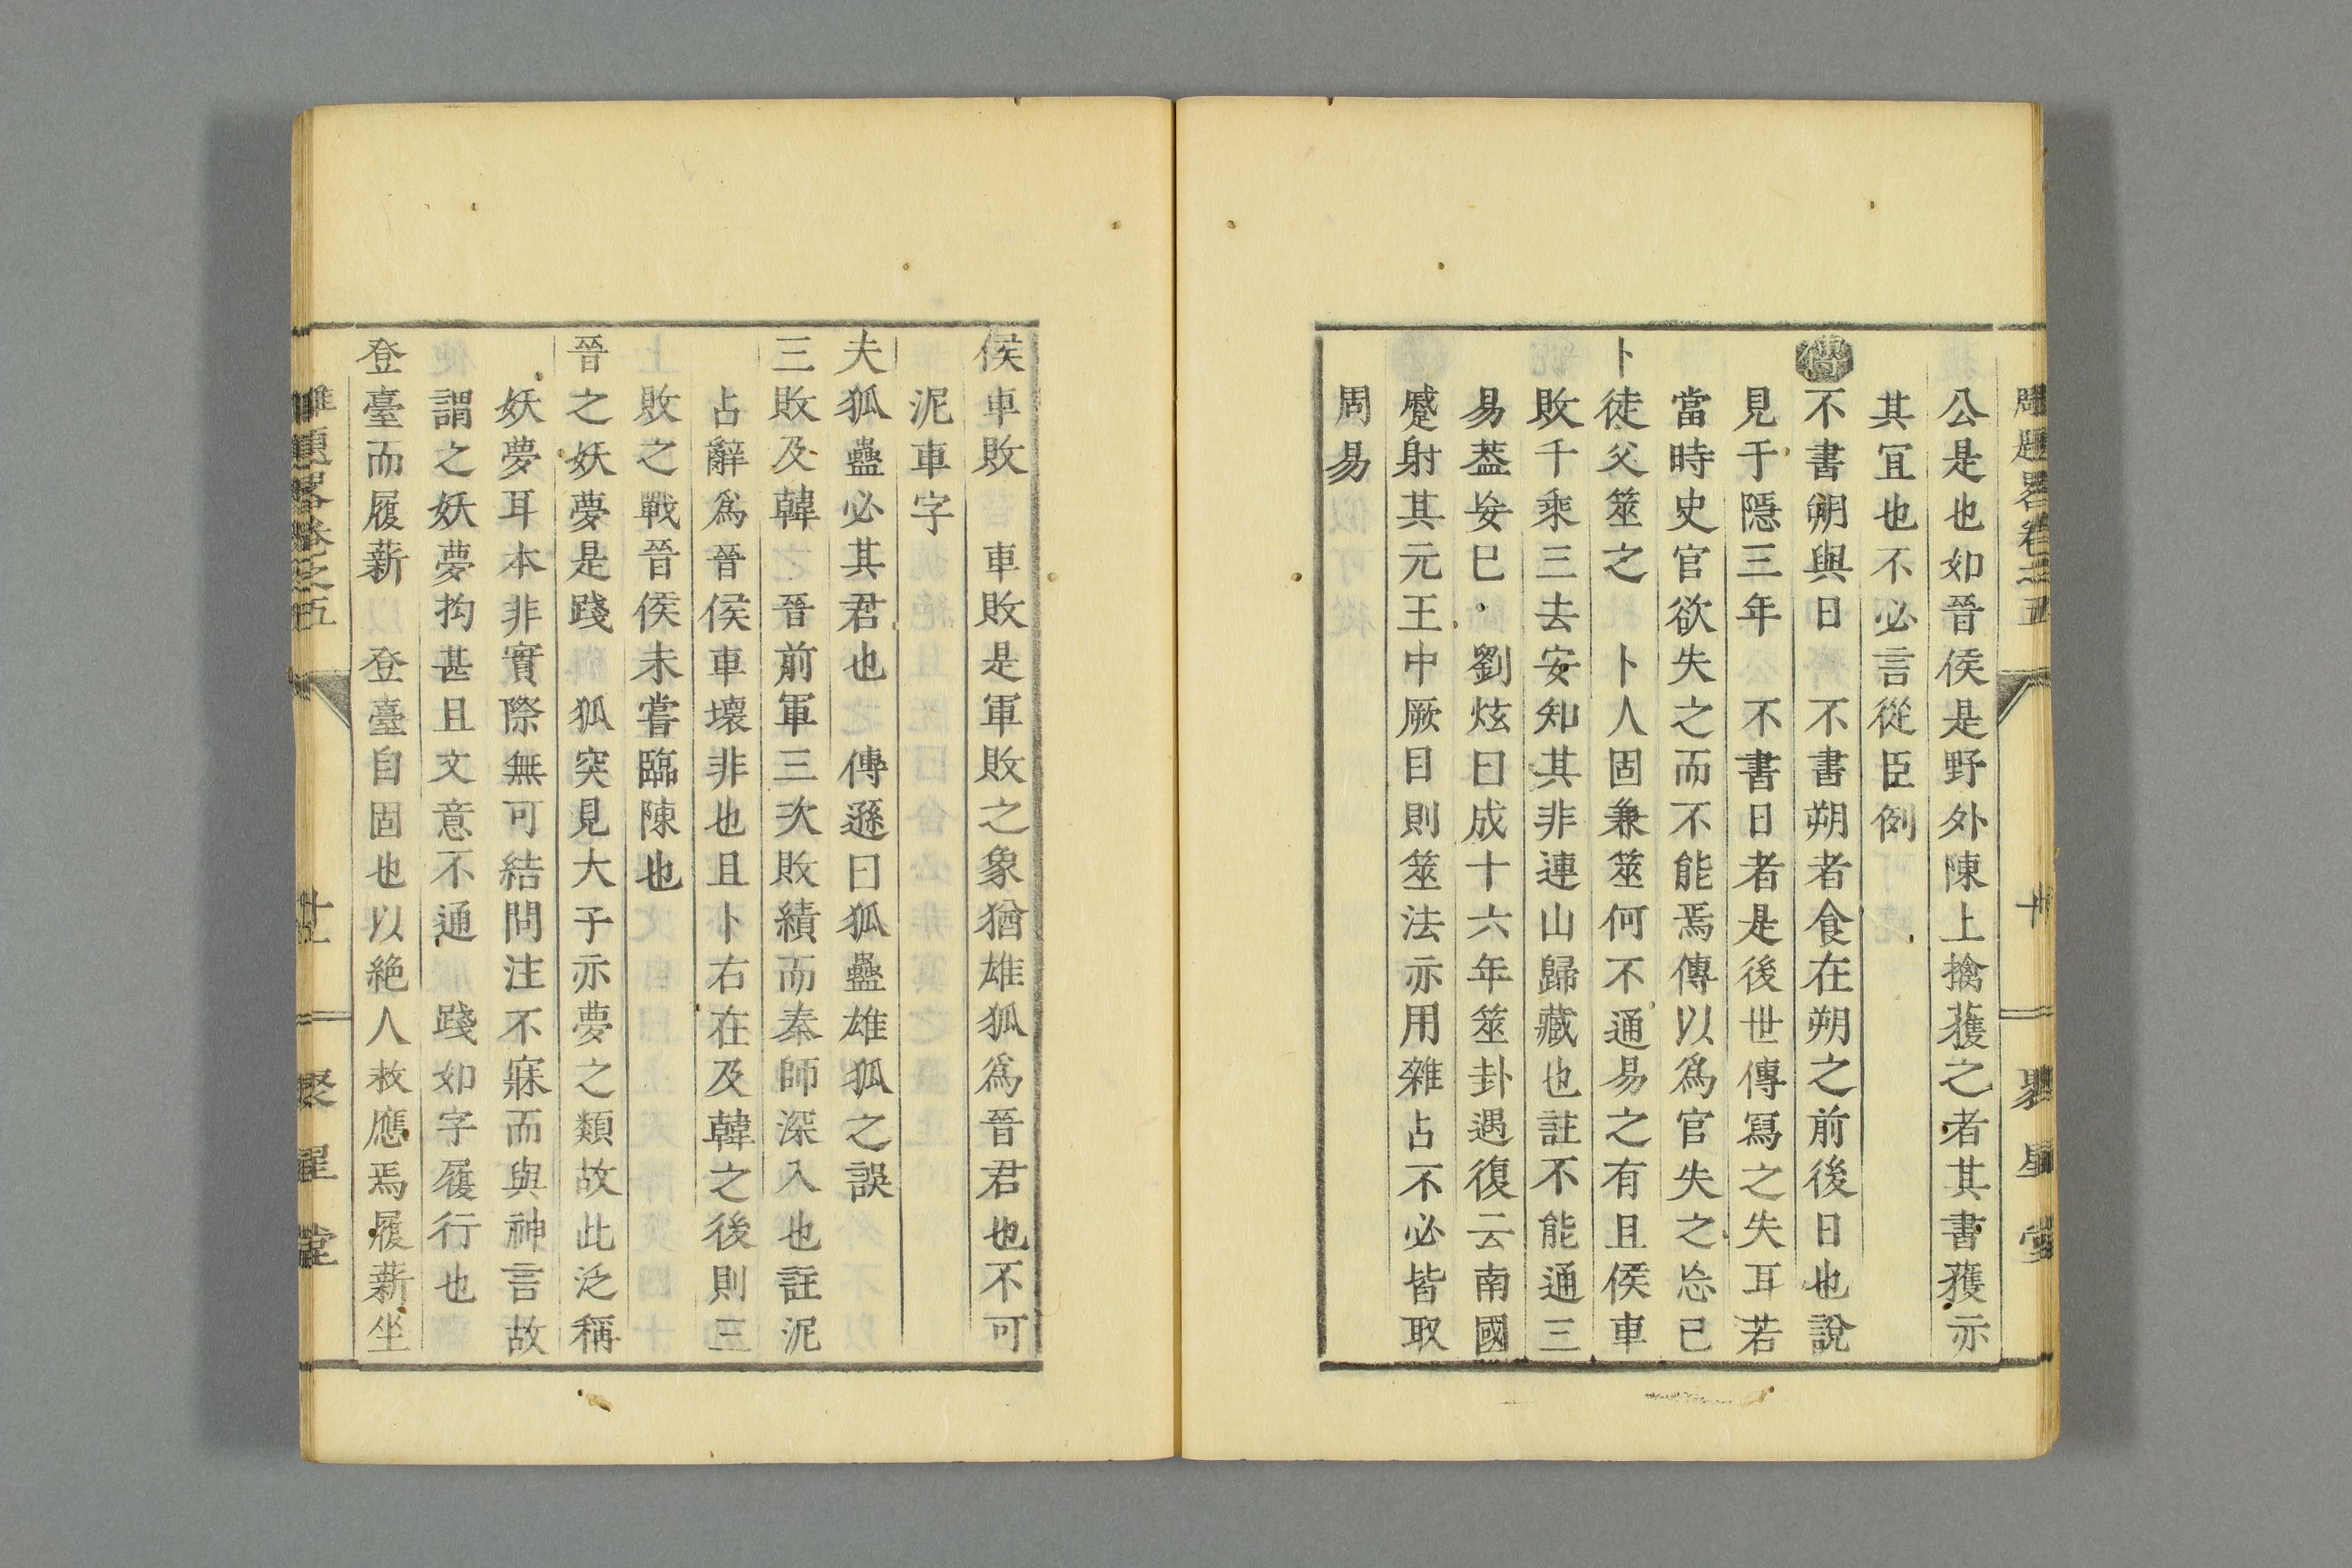 公是也如晉侯是野外陳上擒獲之者其書獲亦
其冝也不必言從臣例
傳不書朔與日　不書朔者食在朔之前後日也說
見于隱三年　不書日者是後世傳寫之失耳若
當時史官欲失之而不能焉傳以爲官失之忩已
卜徒父筮之　卜人固兼筮何不通易之有且侯車
敗千乘三去安知其非連山歸藏也註不能通三
易葢妄巳　劉炫曰成十六年筮卦遇復云南國
蹙射其元王中厥目則筮法亦用雜占不必皆取
周易
侯車敗　車敗是軍敗之象猶雄狐爲晉君也不可
泥車字
夫狐蠱必其君也　傳遜曰狐蠱雄狐之誤
三敗及韓　晉前軍三次敗績而秦師深入也註泥
占辭爲晉侯車壞非也且卜右在及韓之後則三
敗之戰晉侯未嘗臨陳也
晉之妖夢是踐　狐突見大子亦夢之類故此泛稱
妖夢耳本非實際無可結問注不寐而與神言故
謂之妖夢拘甚且文意不通　踐如字履行也
登臺而履薪　登臺自固也以絶人救應焉履薪坐
雕題畧卷之五
廿一
聚星堂